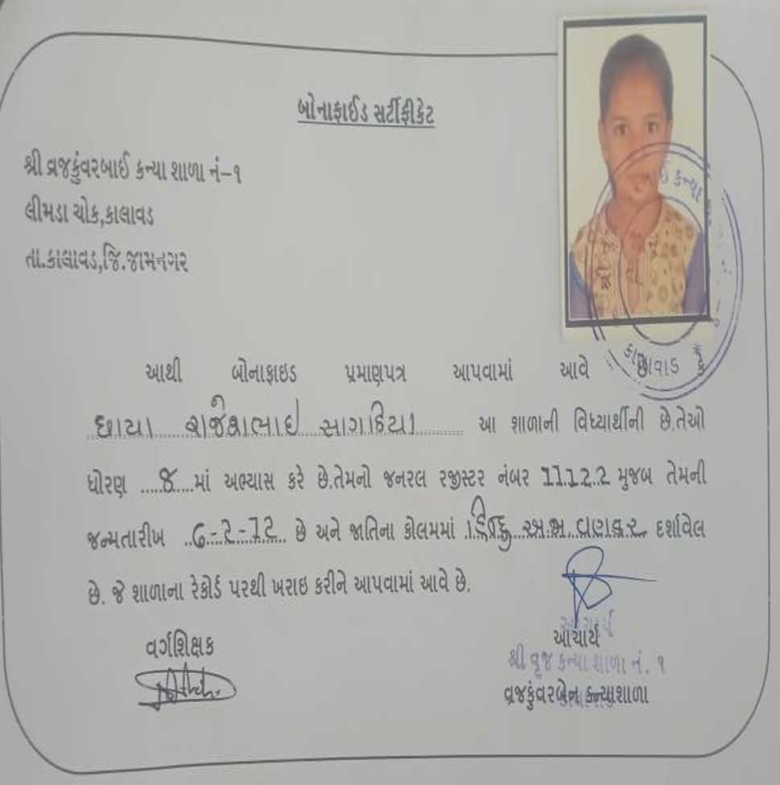 બોનાફાઈડ સર્ટીફીકેટ
શ્રી વ્રજકુંવરબાઈ કન્યા શાળા નં-૧
લીમડા ચોક,કાલાવડ
તા.કાલાવડ,જિ.જામનગર
આથી બોનાફાઇડ પ્રમાણપત્ર આપવામાં આવે છે કે
છાયા રાજેશભાઇ સાગઠિયા આ શાળાની વિધ્યાર્થીની છે.તેઓ
ધોરણ ....૪....માં અભ્યાસ કરે છે.તેમનો જનરલ રજીસ્ટર નંબર 11122 મુજબ તેમની
જન્મતારીખ ..૬-૨-12.. છે અને જાતિના કોલમમાં હિન્દુ અ.જા વણકર દર્શાવેલ
છે. જે શાળાના રેકોર્ડ પરથી ખરાઇ કરીને આપવામાં આવે છે.
વર્ગશિક્ષક
આચાર્ય
આચાર્ય
શ્રી વૃજ કન્યા શાળા નં. ૧
વ્રજકુંવરબેન કન્યાશાળા